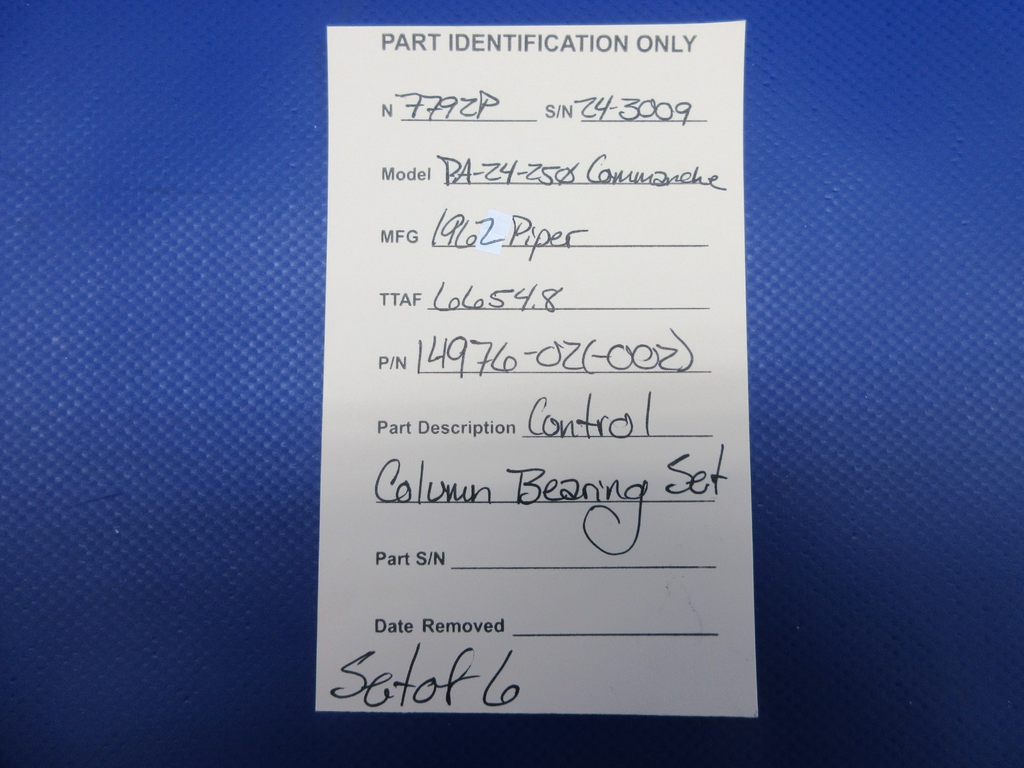 PART IDENTIFICATION ONLY
N 7792P S/N 24-3009
Model PA-24-250 Commanche
MFG 1962 Piper
TTAF 6654.8
P/N 14976-02(-002)
Part Description Control
Column Bearing Set
Part S/N
Date Removed
Set of 6